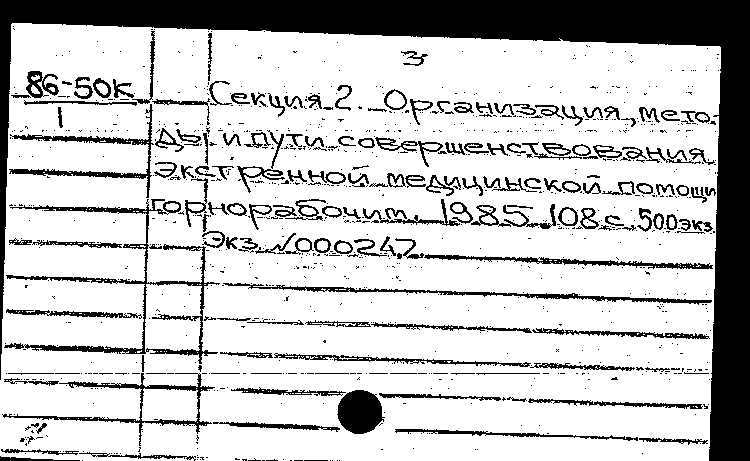 3
86-50К
1
Секция 2. Организация, мето-
ды и пути совершенствования
экстренной медицинской помощи
горнорабочим. 1985 108 с. 500 экз
Экз. №000247